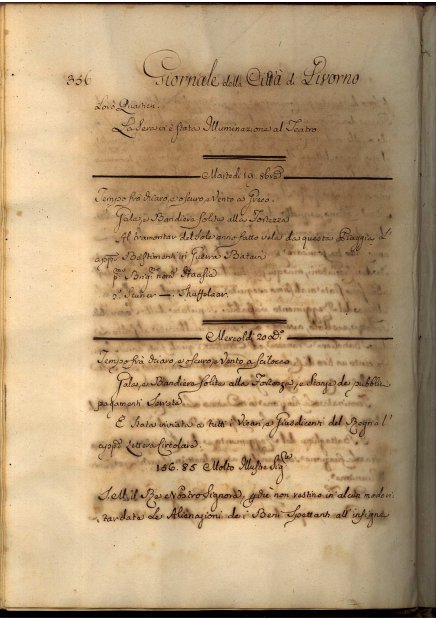 356 Giornale della Città di Livorno
loro Quartieri.
La Sera vi è stata Illuminazione al Teatro
Martedì 19. 8bre
Tempo frà chiaro, e oscuro, e Vento a Greco.
Gala, e Bandiera solita alla Fortezza
Al tramontar del Sole anno fatto vela da questa Spiaggia
appi Bastimenti di Guerra Batavi
Mercoldì 20 do
Tempo frà chiaro, e oscuro, e Vento a Scilocco
Gala, e Bandiera solita alla Fortezza, e Stanza de pubblici
pagamenti Serrata
È stata inviata a tutti i Vicari, e Giusdicenti del Regno l'
appa Lettera Circolare.
156. 85 Molto Illustre Sige
S. M. il Re Nostro Signore, che non restino in alcun modo ri
tardate le Alienazioni de i Beni Spettanti all'insigne